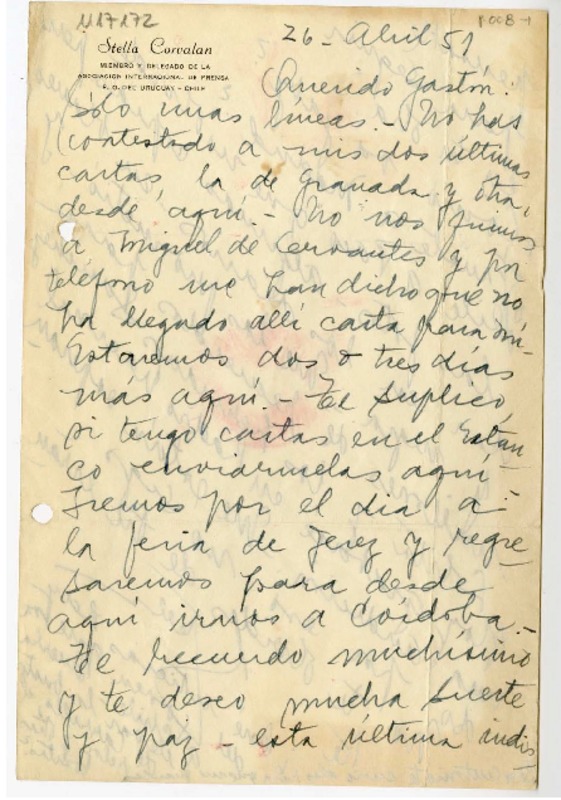 117172
Stella Corvalan
MIEMBRO Y DELEGADO DE LA
ASOCIACION INTERNACIONAL DE PRENSA
R. O. DEL URUGUAY - CHILE
26 - Abril 51
Querido Gastón:
Sólo unas líneas. - No has
contestado a mis dos últimas
cartas, la de Granada y otra,
desde aquí. - No nos fuimos
a Miguel de Cervantes y por
teléfono me han dicho que no
ha llegado allí carta para mí -
Estaremos dos o tres días
más aquí. - Te suplico,
si tengo cartas en el Estan-
co enviarmelas aquí -
Iremos por el dia a
la feria de Jerez y regre-
saremos para desde
aquí irnos a Córdoba. -
Te recuerdo muchísimo
y te deseo mucha suerte
y paz - esta última indis-